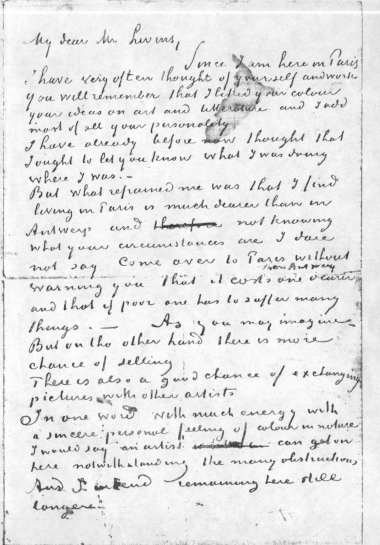 My dear Mr Levens,
Since I am here in Paris
I have very often thought of yourself and work
you will remember that I liked your colour
your ideas on art and litterature and I add
most of all your personality
I have already before now thought that
I ought to let you know what I was doing
where I was. –
But what refrained me was that I find
living in Paris is much dearer than in
Antwerp and therefore not knowing
what your circumstances are I dare
not say Come over to Paris without
from Antwerp
warning you that it costs one dearer
and that if poor one has to suffer many
things. – As you may imagine –
But on the other hand there is more
chance of selling
There is also a good chance of exchanging
pictures with other artists
In one word with much energy with
a sincere personal feeling of colour in nature
I would say an artist can get on
here notwithstanding the many obstructions
And I intend remaining here still
longer.